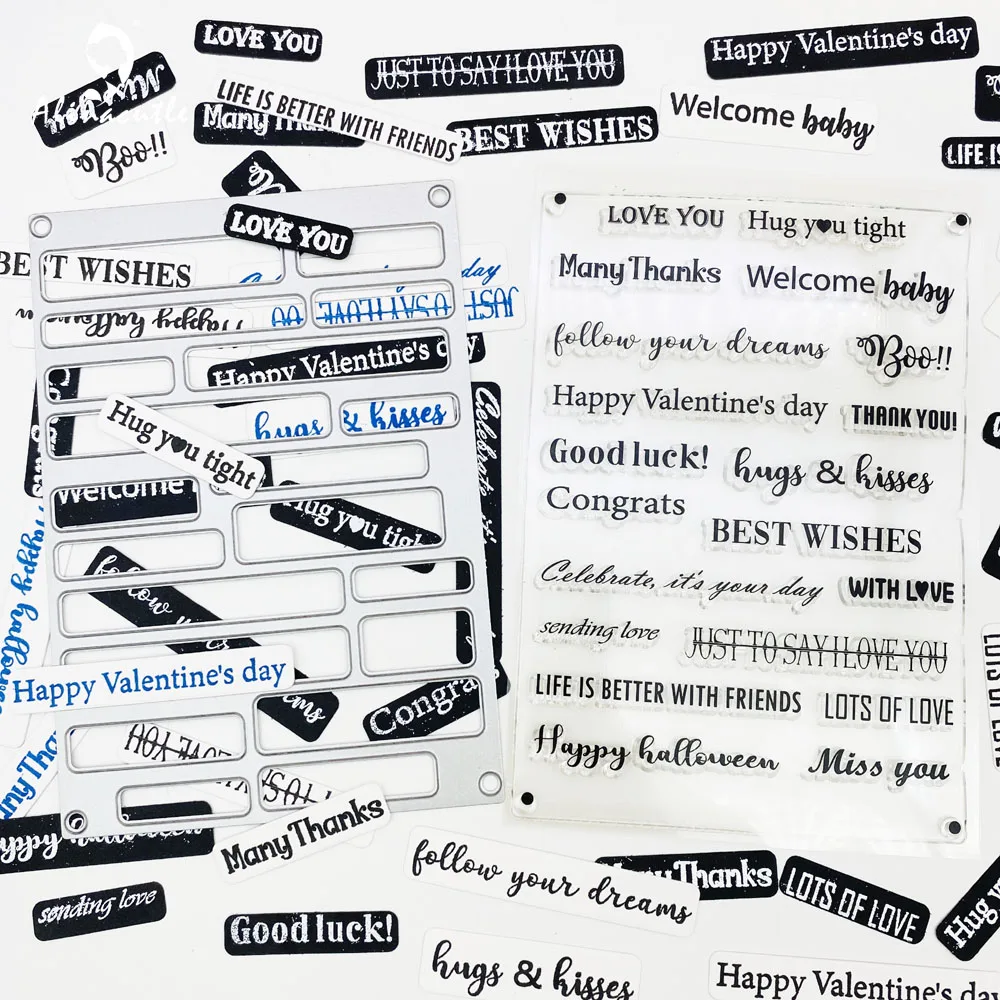 LOVE YOU
JUST TO SAY I LOVE YOU
Happy Valentine's day
Miss you
Boo!!
Many Thanks
LIFE IS BETTER WITH FRIENDS
BEST WISHES
Welcome baby
LIFE IS
LOVE YOU
BEST WISHES
day
Happy halloween
JUST TO SAY I LOVE YOU
Happy Valentine's day
hugs & kisses
Hug you tight
Welcome
Hug you tight
Celebrate, it's
follow
Happy halloween
Happy Valentine's day
Congra
LOVE YOU
Many Tha
Many Thanks
Happy halloween
sending love
Good luck!
follow your dreams
hugs & kisses
Many Thanks
LOTS OF LOVE
Hug y
Happy Valentine's day
LOTS OF LOVE
LOVE YOU Hug you tight
Many Thanks Welcome baby
follow your dreams Boo!!
Happy Valentine's day THANK YOU!
Good luck! hugs & kisses
Congrats
BEST WISHES
Celebrate, it's your day WITH LOVE
sending love JUST TO SAY I LOVE YOU
LIFE IS BETTER WITH FRIENDS LOTS OF LOVE
Happy halloween Miss you